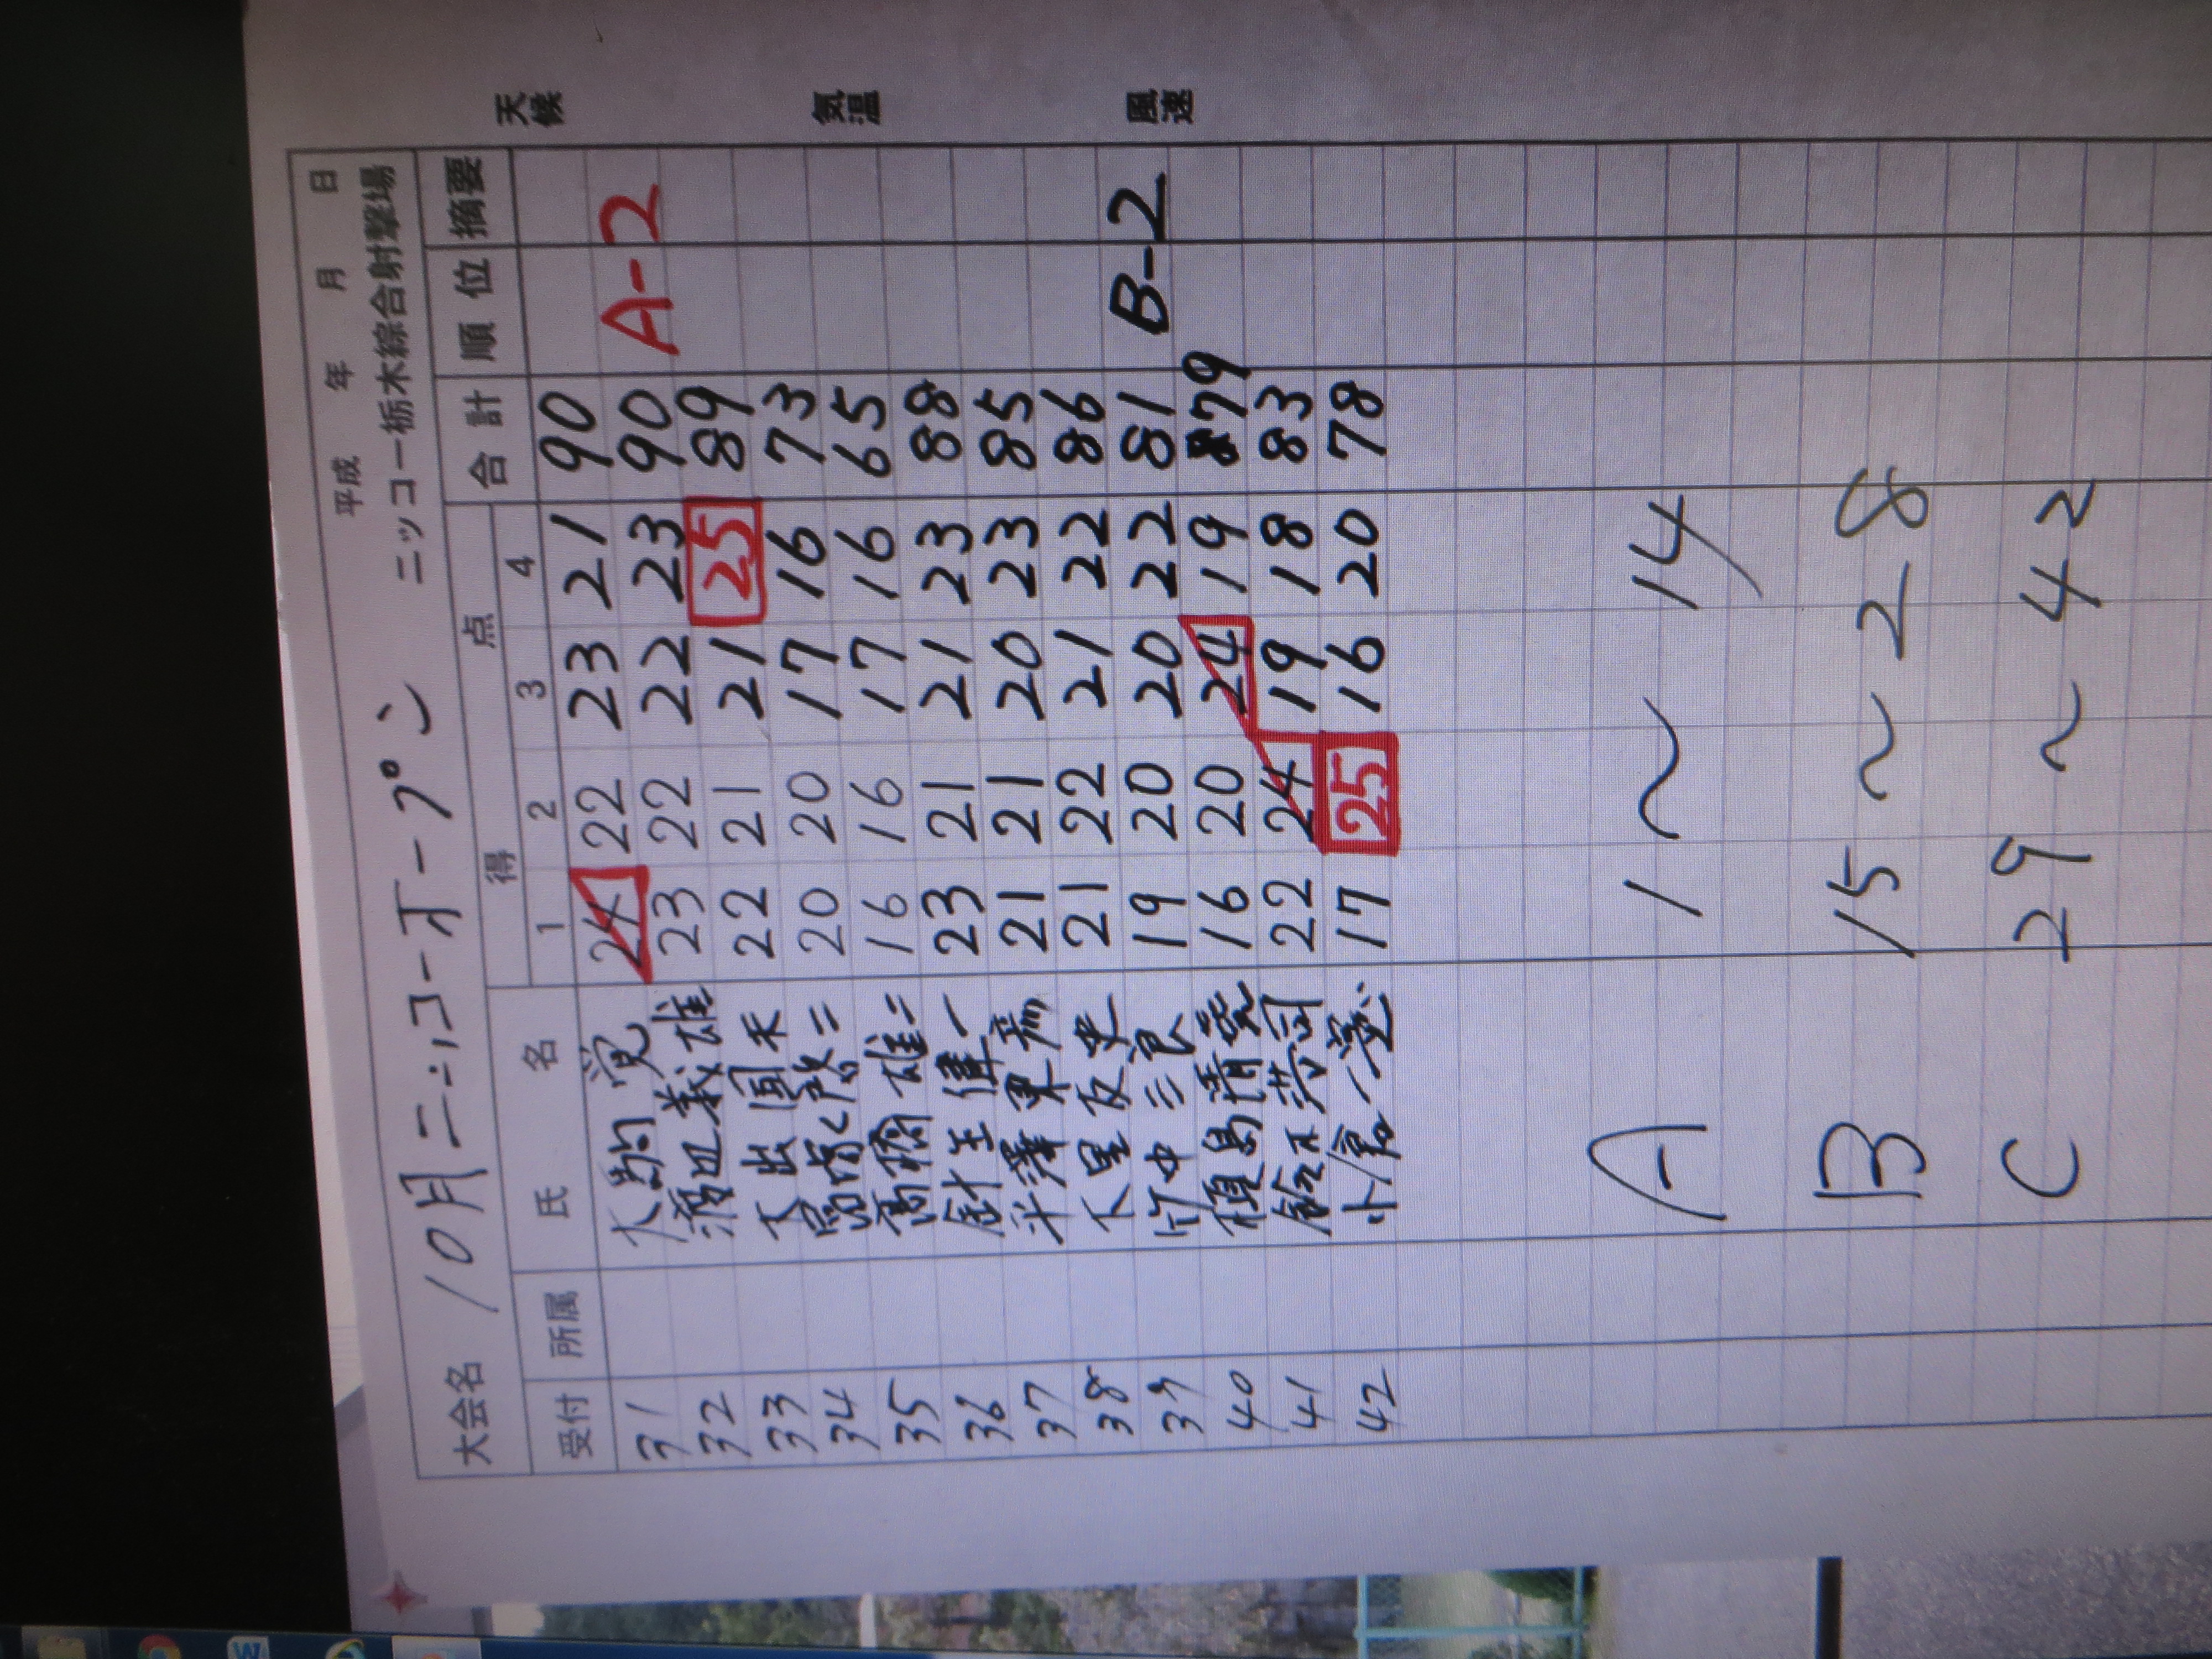 平成 年 月 日
大会名 10月ニッコーオープン ニッコー栃木綜合射撃場
受付 所属 氏名 得点 合計 順位 摘要
1 2 3 4
天候
気温
風速
31 24 22 23 21 90
32 義雄 23 22 22 23 90 A-2
33 22 21 21 25 89
34 20 20 17 16 73
35 高橋雄二 16 16 17 16 65
36 23 21 21 23 88
37 21 21 20 23 85
38 21 22 21 22 86
39 竹中三 19 20 20 22 81 B-2
40 16 20 24 19 79
41 鈴木 22 24 19 18 83
42 17 25 16 20 78
A 1〜14
B 15〜28
C 29〜42